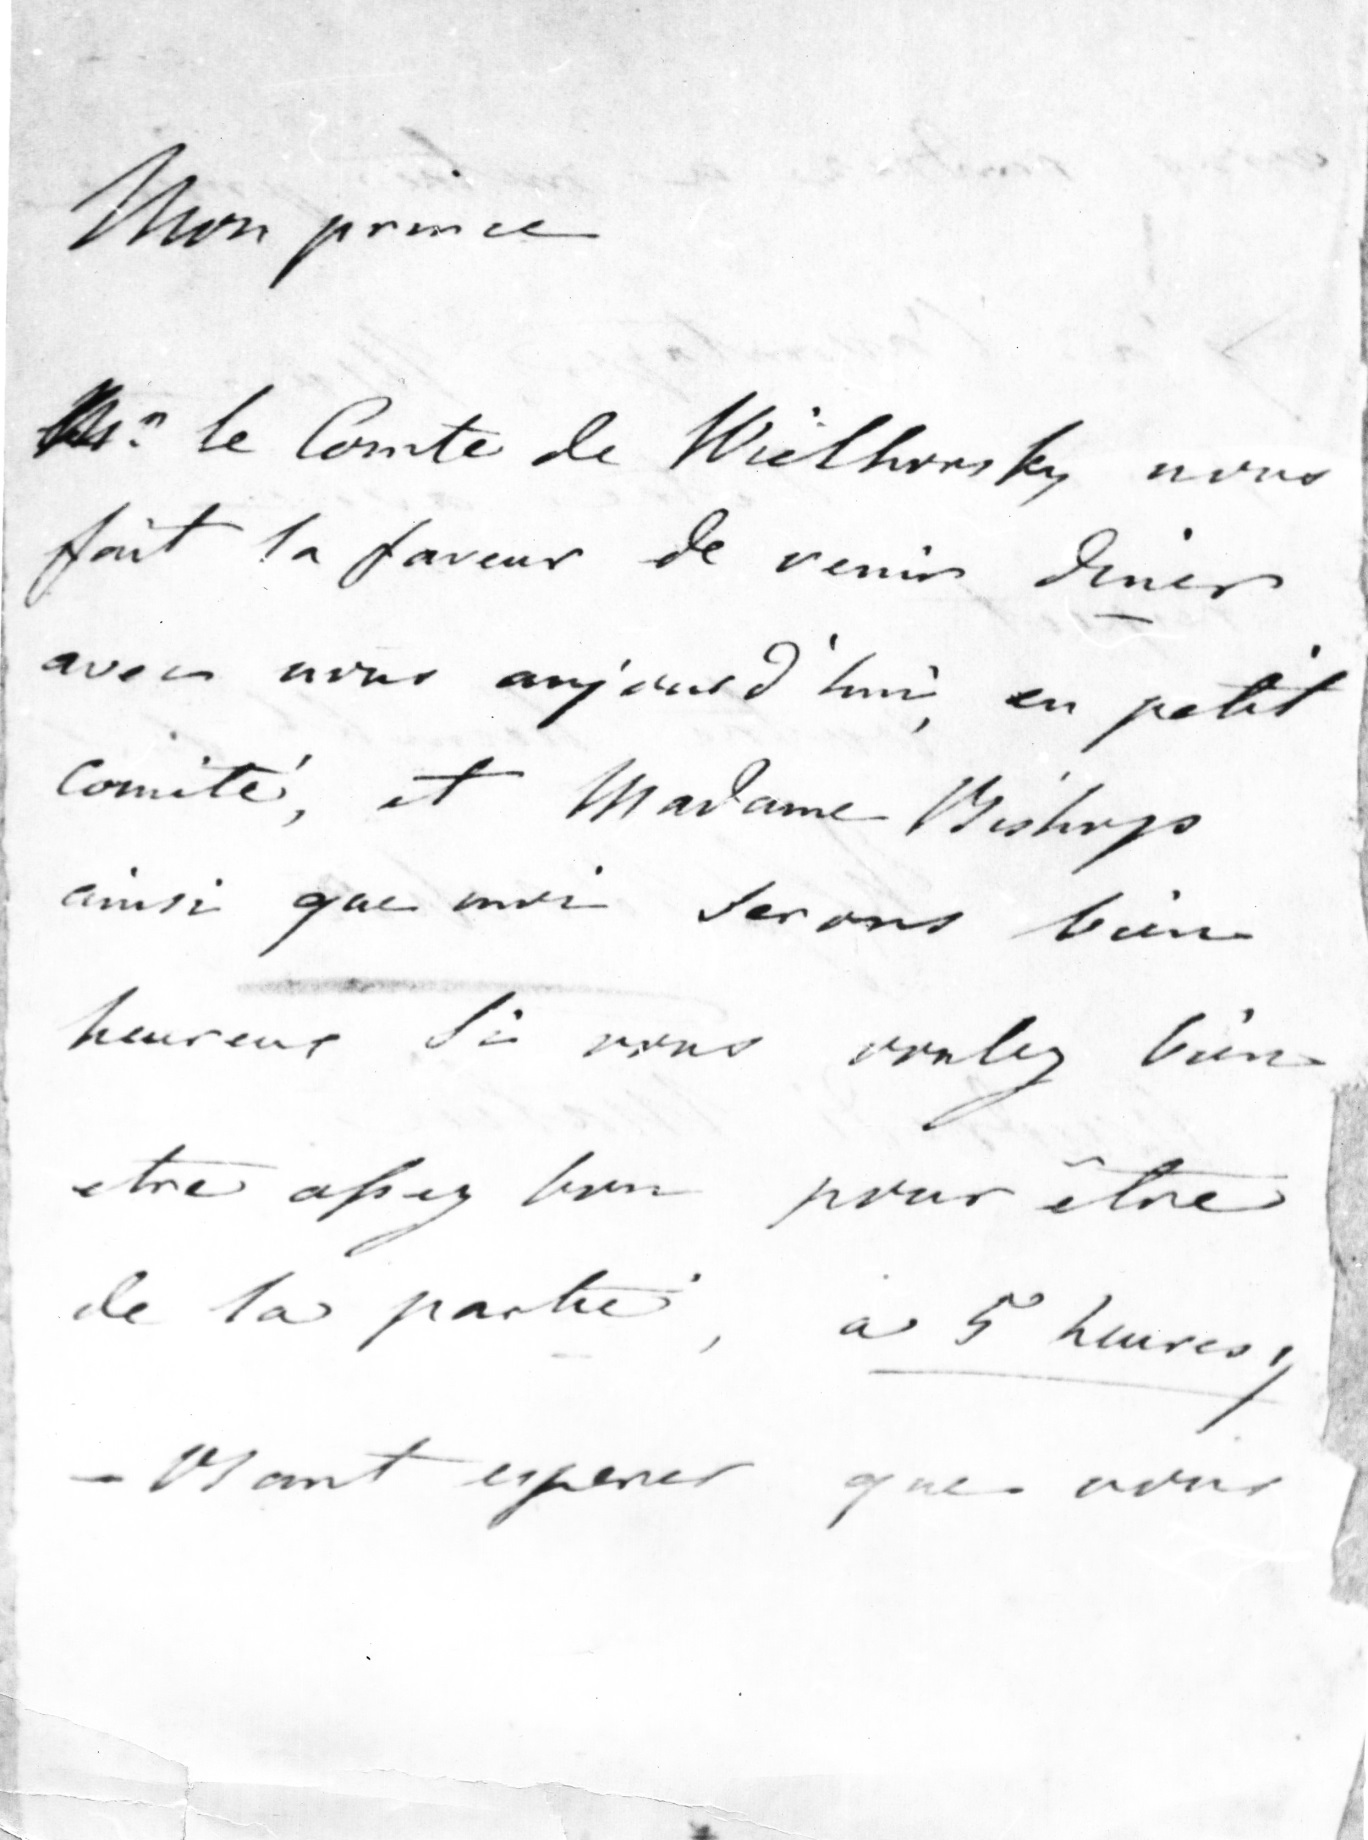 Mon prince
Mr. le Comte de Wielhorsky nous
fait la faveur de venir diner
avec nous aujourd'hui, en petit
comité, et Madame Bishop
ainsi que moi serons bien
heureux si vous voulez bien
etre assez bon pour être
de la partie, a 5 heures,
- Osant esperer que vous